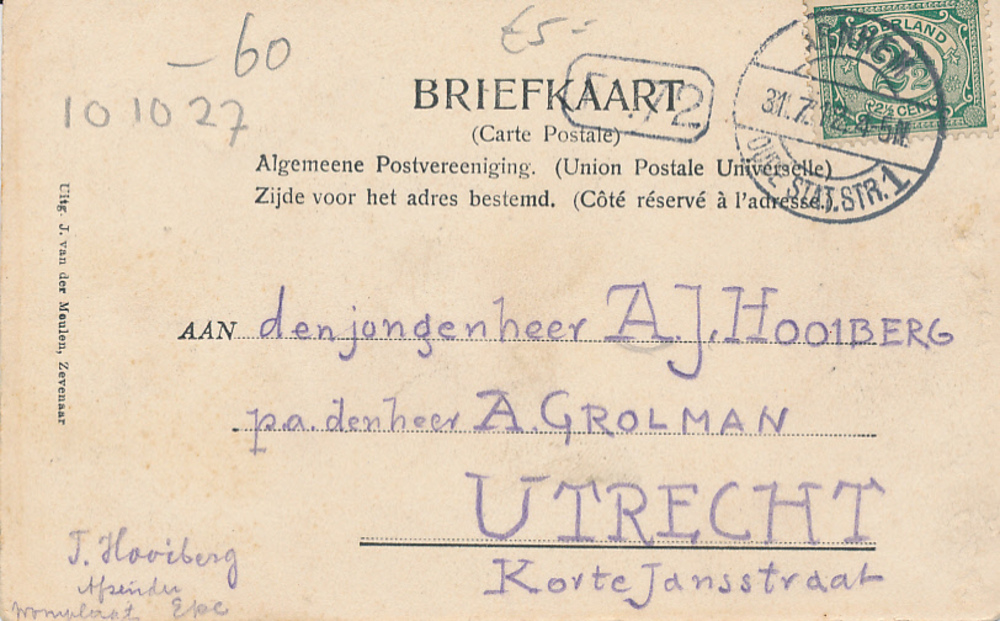 -60
£5-
10 10 27
BRIEFKAART
(Carte Postale)
Algemeene Postvereeniging. (Union Postale Universelle)
Zijde voor het adres bestemd. (Côté réservé à l'adresse.)
ARNHEM
31.7. 4-5N.
OUDE STAT.STR. 1
2½ CENT
Uitg. J. van der Meulen, Zevenaar
AAN den jongenheer A.J. HOOIBERG
p.a. den heer A. GROLMAN
UTRECHT
Korte Jansstraat
T. Hooiberg
Afzender
Woonplaats Epe